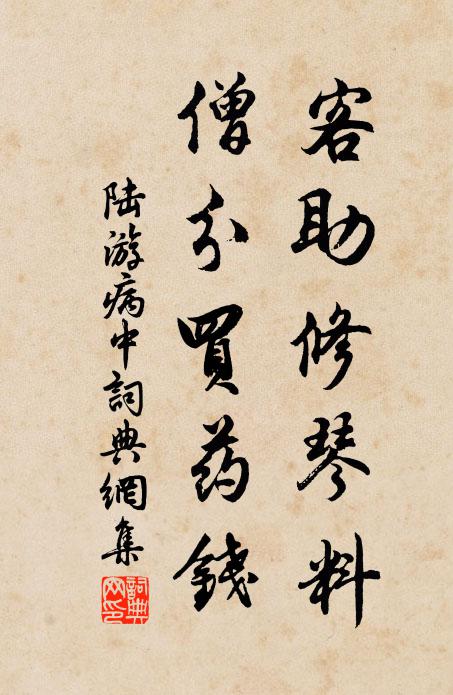 客助修琴料
僧分買药錢
陆游病中詞典網集
詞典
网印